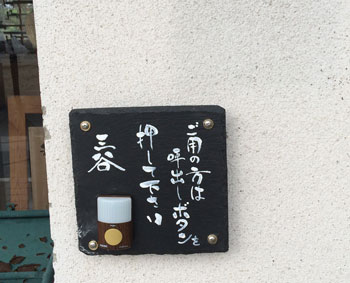 ご用の方は
呼出しボタンを
押して下さい
三谷